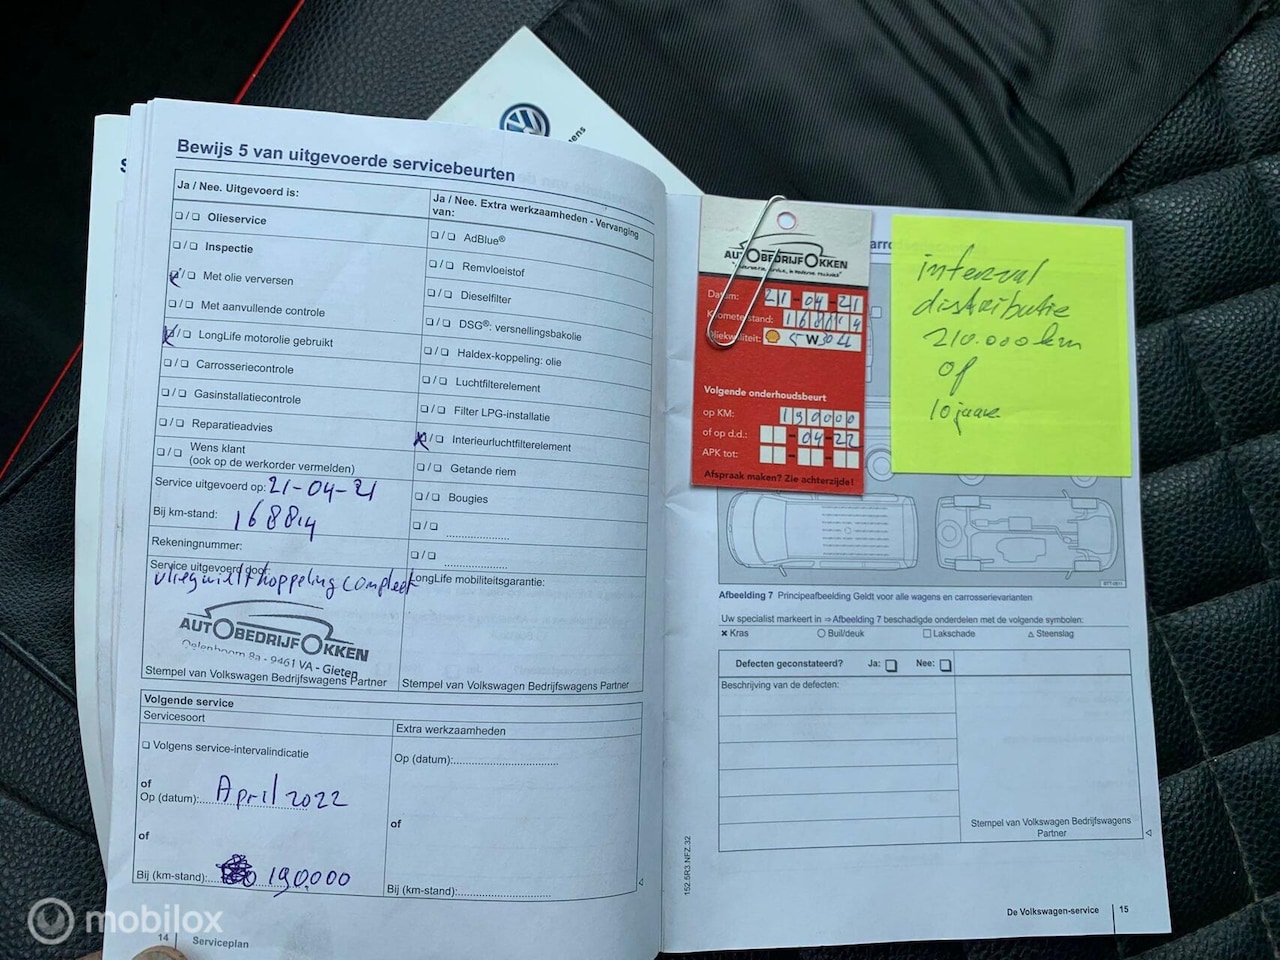 Bewijs 5 van uitgevoerde servicebeurten
Ja / Nee. Uitgevoerd is:
❏/❏ Olieservice
❏/❏ Inspectie
❏/❏ Met olie verversen
❏/❏ Met aanvullende controle
❏/❏ LongLife motorolie gebruikt
❏/❏ Carrosseriecontrole
❏/❏ Gasinstallatiecontrole
❏/❏ Reparatieadvies
❏/❏ Wens klant
(ook op de werkorder vermelden)
Service uitgevoerd op: 21-04-21
Bij km-stand: 168814
Rekeningnummer:
Service uitgevoerd door:
vliegwiel + koppeling compleet
AUTOBEDRIJF OKKEN
8a - 9461 VA - Gieten
Stempel van Volkswagen Bedrijfswagens Partner
Ja / Nee. Extra werkzaamheden - Vervanging
van:
❏/❏ AdBlue®
❏/❏ Remvloeistof
❏/❏ Dieselfilter
❏/❏ DSG®: versnellingsbakolie
❏/❏ Haldex-koppeling: olie
❏/❏ Luchtfilterelement
❏/❏ Filter LPG-installatie
❏/❏ Interieurluchtfilterelement
❏/❏ Getande riem
❏/❏ Bougies
❏/❏
❏/❏
LongLife mobiliteitsgarantie:
Stempel van Volkswagen Bedrijfswagens Partner
Volgende service
Servicesoort
❏ Volgens service-intervalindicatie
of
Op (datum): April 2022
of
Bij (km-stand): 190.000
Extra werkzaamheden
Op (datum):
of
Bij (km-stand):
14 Serviceplan
AUTOBEDRIJF OKKEN
Datum: 21-04-21
Kilometerstand: 168814
Oliekwaliteit: 5 W 30 LL
Volgende onderhoudsbeurt
op KM: 190000
of op d.d.: - 04 - 22
APK tot:
Afspraak maken? Zie achterzijde!
interval
distributie
210.000 km
of
10 jaar
Afbeelding 7 Principeafbeelding Geldt voor alle wagens en carrosserievarianten
Uw specialist markeert in ⇒Afbeelding 7 beschadigde onderdelen met de volgende symbolen:
✖ Kras ○ Buil/deuk □ Lakschade △ Steenslag
Defecten geconstateerd? Ja: ❏ Nee: ❏
Beschrijving van de defecten:
Stempel van Volkswagen Bedrijfswagens
Partner
152.5R3.NFZ.32
De Volkswagen-service 15
mobilox